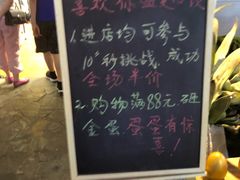 喜欢你
1.进店均可参与
10"秒挑战.成功
全场半价
2.购物满88元.砸
金蛋,蛋蛋有惊
喜!